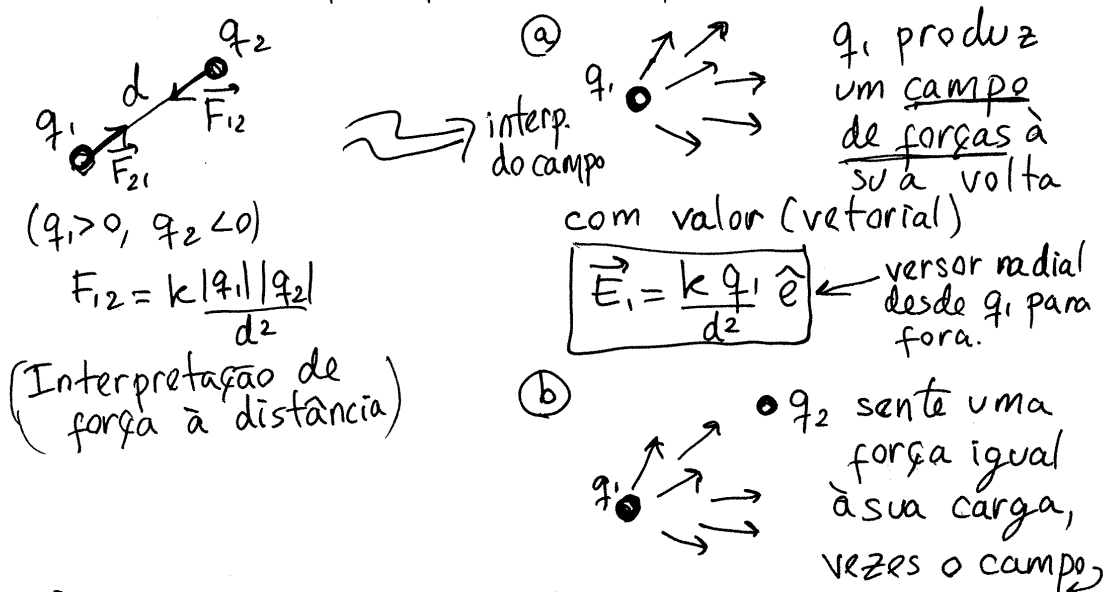 q₂
d
F⃗₁₂
q₁
F⃗₂₁
(q₁>0, q₂<0)
F₁₂ = k|q₁||q₂|
d²
(Interpretação de
força à distância)
interp.
do campo
ⓐ
q₁
q₁ produz
um campo
de forças à
sua volta
com valor (vetorial)
E⃗₁ = k q₁ ê
d²
versor radial
desde q₁ para
fora.
ⓑ
q₁
q₂ sente uma
força igual
à sua carga,
vezes o campo